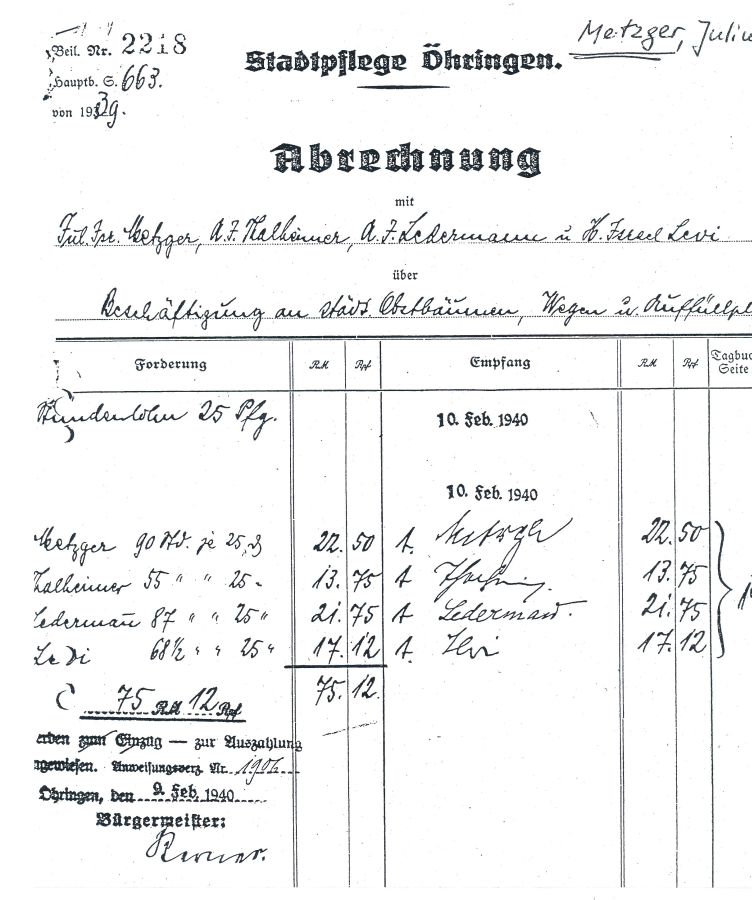 Metzger, Juliu
Beil. Nr. 2218
Hauptb. S. 663.
von 1939.
Stadtpflege Öhringen.
Abrechnung
mit
Jul. Isr. Metzger, A. I. Thalheimer, A. I. Ledermann u H. Israel Levi
über
Beschäftigung an städt. Obstbäumen, Wegen u. Auffüllpl
Forderung RM Rpf Empfang RM Rpf Tagbuc
Seite
Stundenlohn 25 Pfg. 10. Feb. 1940
10. Feb. 1940
Metzger 90 Std. je 25 ₰ 22. 50 t. Metzger 22. 50
Thalheimer 55 " " 25 - 13. 75 t 13. 75
Ledermann 87 " " 25 " 21. 75 t Ledermann. 21. 75
Levi 68½ " " 25 " 17. 12 t. Levi 17. 12
75 RM 12 Rpf 75. 12.
erden zum Einzug — zur Auszahlung
ngewiesen. Anweisungsverz. Nr. 1906
Öhringen, den 9. Feb. 1940
Bürgermeister: